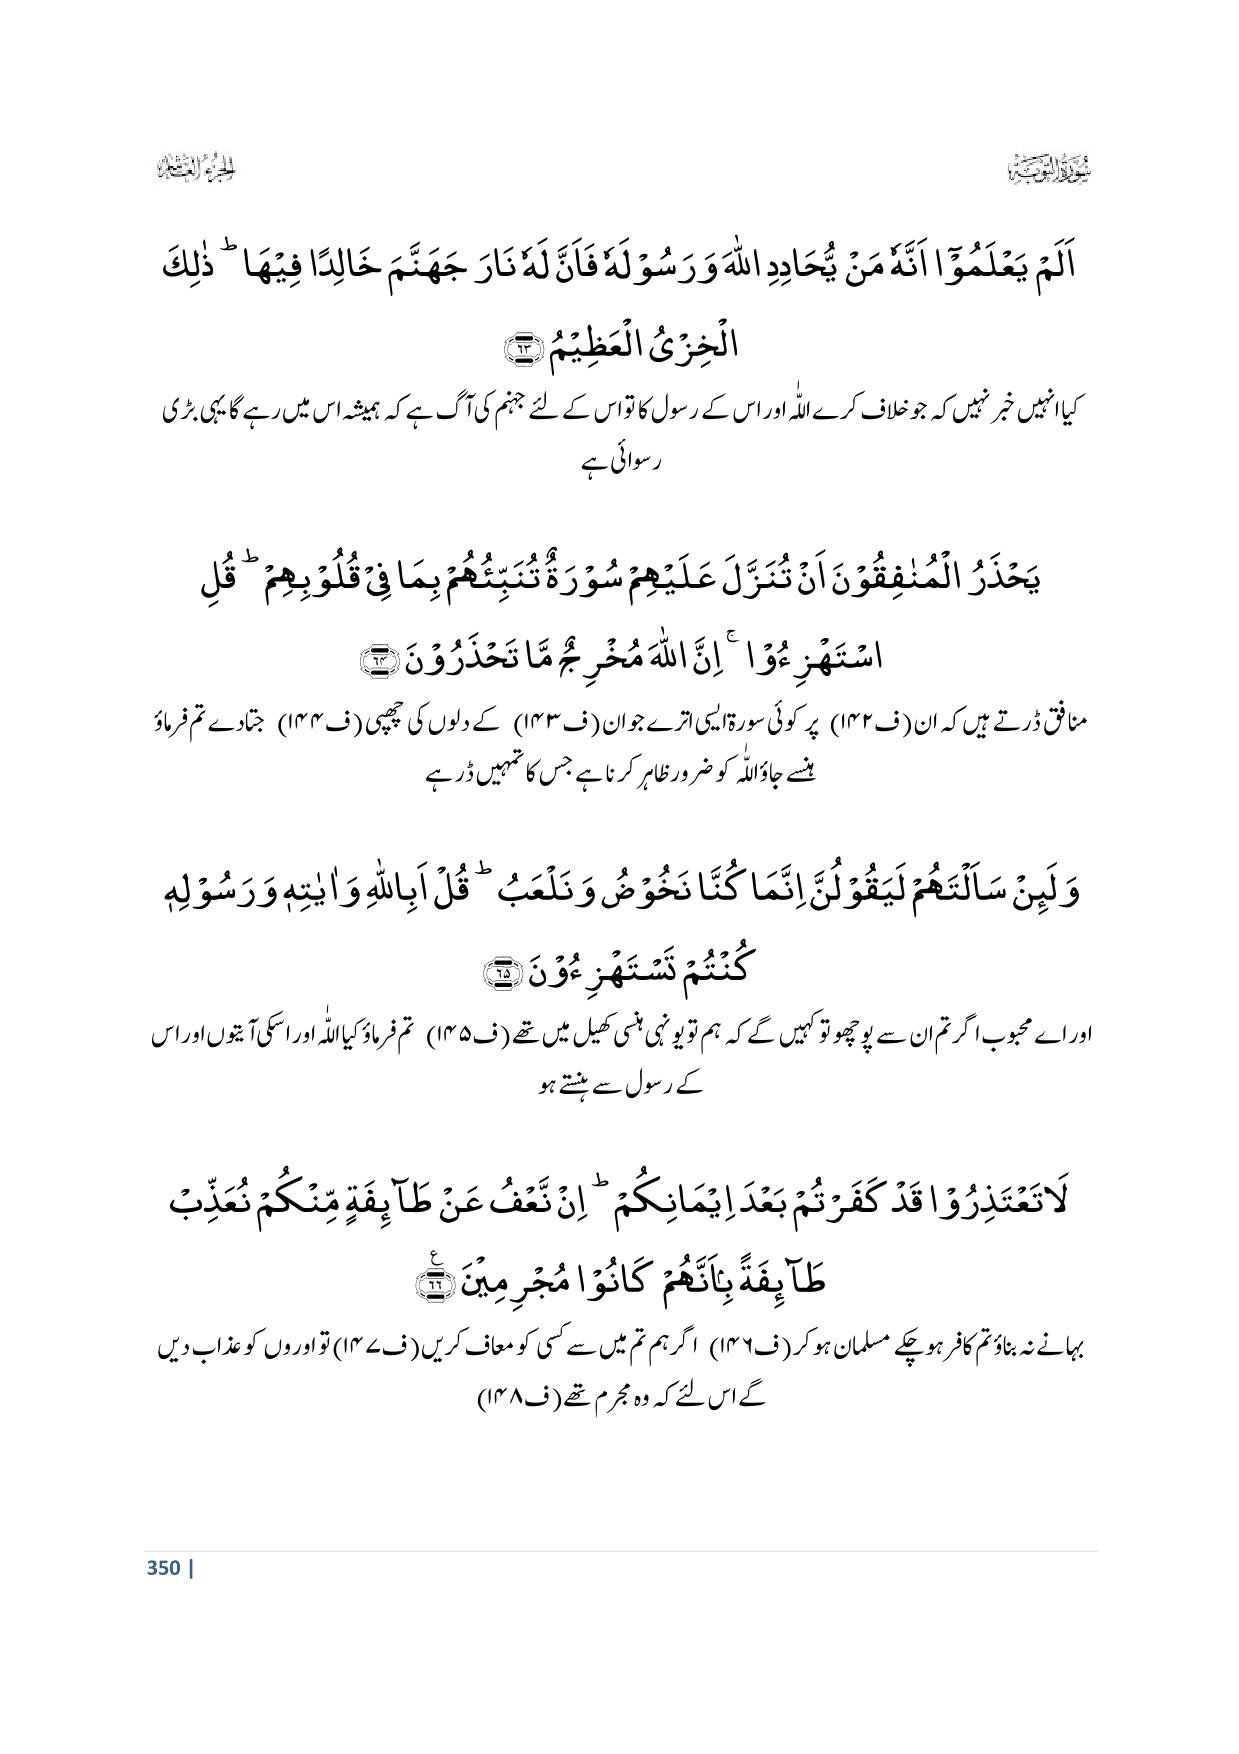 سُوۡرَۃُ التَّوۡبَۃِ
الجزء العاشر
اَلَمۡ یَعۡلَمُوۡۤا اَنَّہٗ مَنۡ یُّحَادِدِ اللّٰہَ وَ رَسُوۡلَہٗ فَاَنَّ لَہٗ نَارَ جَہَنَّمَ خَالِدًا فِیۡہَا ؕ ذٰلِکَ
الۡخِزۡیُ الۡعَظِیۡمُ ﴿۶۳﴾
کیا انہیں خبر نہیں کہ جو خلاف کرے اللّٰہ اور اس کے رسول کا تو اس کے لئے جہنم کی آگ ہے کہ ہمیشہ اس میں رہے گا یہی بڑی
رسوائی ہے
یَحۡذَرُ الۡمُنٰفِقُوۡنَ اَنۡ تُنَزَّلَ عَلَیۡہِمۡ سُوۡرَۃٌ تُنَبِّئُہُمۡ بِمَا فِیۡ قُلُوۡبِہِمۡ ؕ قُلِ
اسۡتَہۡزِءُوۡا ۚ اِنَّ اللّٰہَ مُخۡرِجٌ مَّا تَحۡذَرُوۡنَ ﴿۶۴﴾
منافق ڈرتے ہیں کہ ان (ف۱۴۲) پر کوئی سورۃ ایسی اترے جو ان (ف۱۴۳) کے دلوں کی چھپی (ف۱۴۴) جتادے تم فرماؤ
ہنسے جاؤ اللّٰہ کو ضرور ظاہر کرنا ہے جس کا تمہیں ڈر ہے
وَ لَئِنۡ سَاَلۡتَہُمۡ لَیَقُوۡلُنَّ اِنَّمَا کُنَّا نَخُوۡضُ وَ نَلۡعَبُ ؕ قُلۡ اَبِاللّٰہِ وَ اٰیٰتِہٖ وَ رَسُوۡلِہٖ
کُنۡتُمۡ تَسۡتَہۡزِءُوۡنَ ﴿۶۵﴾
اور اے محبوب اگر تم ان سے پوچھو تو کہیں گے کہ ہم تو یونہی ہنسی کھیل میں تھے (ف۱۴۵) تم فرماؤ کیا اللّٰہ اور اسکی آیتوں اور اس
کے رسول سے ہنستے ہو
لَا تَعۡتَذِرُوۡا قَدۡ کَفَرۡتُمۡ بَعۡدَ اِیۡمَانِکُمۡ ؕ اِنۡ نَّعۡفُ عَنۡ طَآئِفَۃٍ مِّنۡکُمۡ نُعَذِّبۡ
طَآئِفَۃًۢ بِاَنَّہُمۡ کَانُوۡا مُجۡرِمِیۡنَ ﴿٪۶۶﴾
بہانے نہ بناؤ تم کافر ہوچکے مسلمان ہوکر (ف۱۴۶) اگر ہم تم میں سے کسی کو معاف کریں (ف۱۴۷) تو اوروں کو عذاب دیں
گے اس لئے کہ وہ مجرم تھے (ف۱۴۸)
350 |